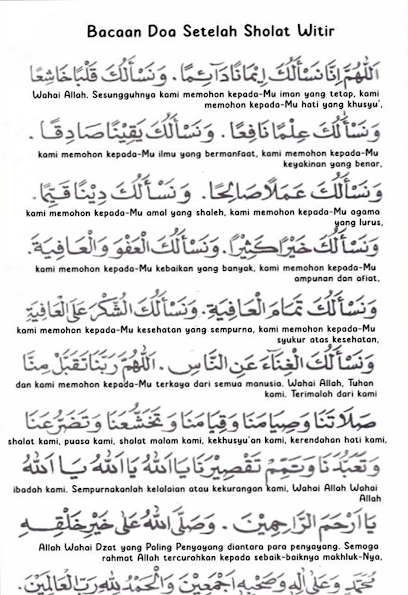 Bacaan Doa Setelah Sholat Witir
اَللّٰهُمَّ اِنَّا نَسْأَلُكَ اِيْمَانًا دَائِمًا. وَنَسْأَلُكَ قَلْبًا خَاشِعًا
Wahai Allah. Sesungguhnya kami memohon kepada-Mu iman yang tetap, kami
memohon kepada-Mu hati yang khusyu',
وَنَسْأَلُكَ عِلْمًا نَافِعًا. وَنَسْأَلُكَ يَقِيْنًا صَادِقًا.
kami memohon kepada-Mu ilmu yang bermanfaat, kami memohon kepada-Mu
keyakinan yang benar,
وَنَسْأَلُكَ عَمَلًا صَالِحًا. وَنَسْأَلُكَ دِيْنًا قَيِّمًا.
kami memohon kepada-Mu amal yang shaleh, kami memohon kepada-Mu agama
yang lurus,
وَنَسْأَلُكَ خَيْرًا كَثِيْرًا. وَنَسْأَلُكَ الْعَفْوَ وَالْعَافِيَةَ.
kami memohon kepada-Mu kebaikan yang banyak, kami memohon kepada-Mu
ampunan dan afiat,
وَنَسْأَلُكَ تَمَامَ الْعَافِيَةِ. وَنَسْأَلُكَ الشُّكْرَ عَلَى الْعَافِيَةِ
kami memohon kepada-Mu kesehatan yang sempurna, kami memohon kepada-Mu
syukur atas kesehatan,
وَنَسْأَلُكَ الْغِنَاءَ عَنِ النَّاسِ. اَللّٰهُمَّ رَبَّنَا تَقَبَّلْ مِنَّا
dan kami memohon kepada-Mu terkaya dari semua manusia. Wahai Allah, Tuhan
kami. Terimalah dari kami
صَلَاتَنَا وَصِيَامَنَا وَقِيَامَنَا وَتَخَشُّعَنَا وَتَضَرُّعَنَا
shalat kami, puasa kami, shalat malam kami, kekhusyu'an kami, kerendahan hati kami,
وَتَعَبُّدَنَا وَتَمِّمْ تَقْصِيْرَنَا يَا اَللهُ يَا اَللهُ يَا اَللهُ
ibadah kami. Sempurnakanlah kelalaian atau kekurangan kami, Wahai Allah Wahai
Allah
يَا اَرْحَمَ الرَّاحِمِيْنَ. وَصَلَّى اللهُ عَلَى خَيْرِ خَلْقِهِ
Allah Wahai Dzat yang Paling Penyayang diantara para penyayang. Semoga
rahmat Allah tercurahkan kepada sebaik-baiknya makhluk-Nya,
مُحَمَّدٍ وَعَلَى اٰلِهِ وَصَحْبِهِ اَجْمَعِيْنَ وَالْحَمْدُ لِلّٰهِ رَبِّ الْعَالَمِيْنَ.